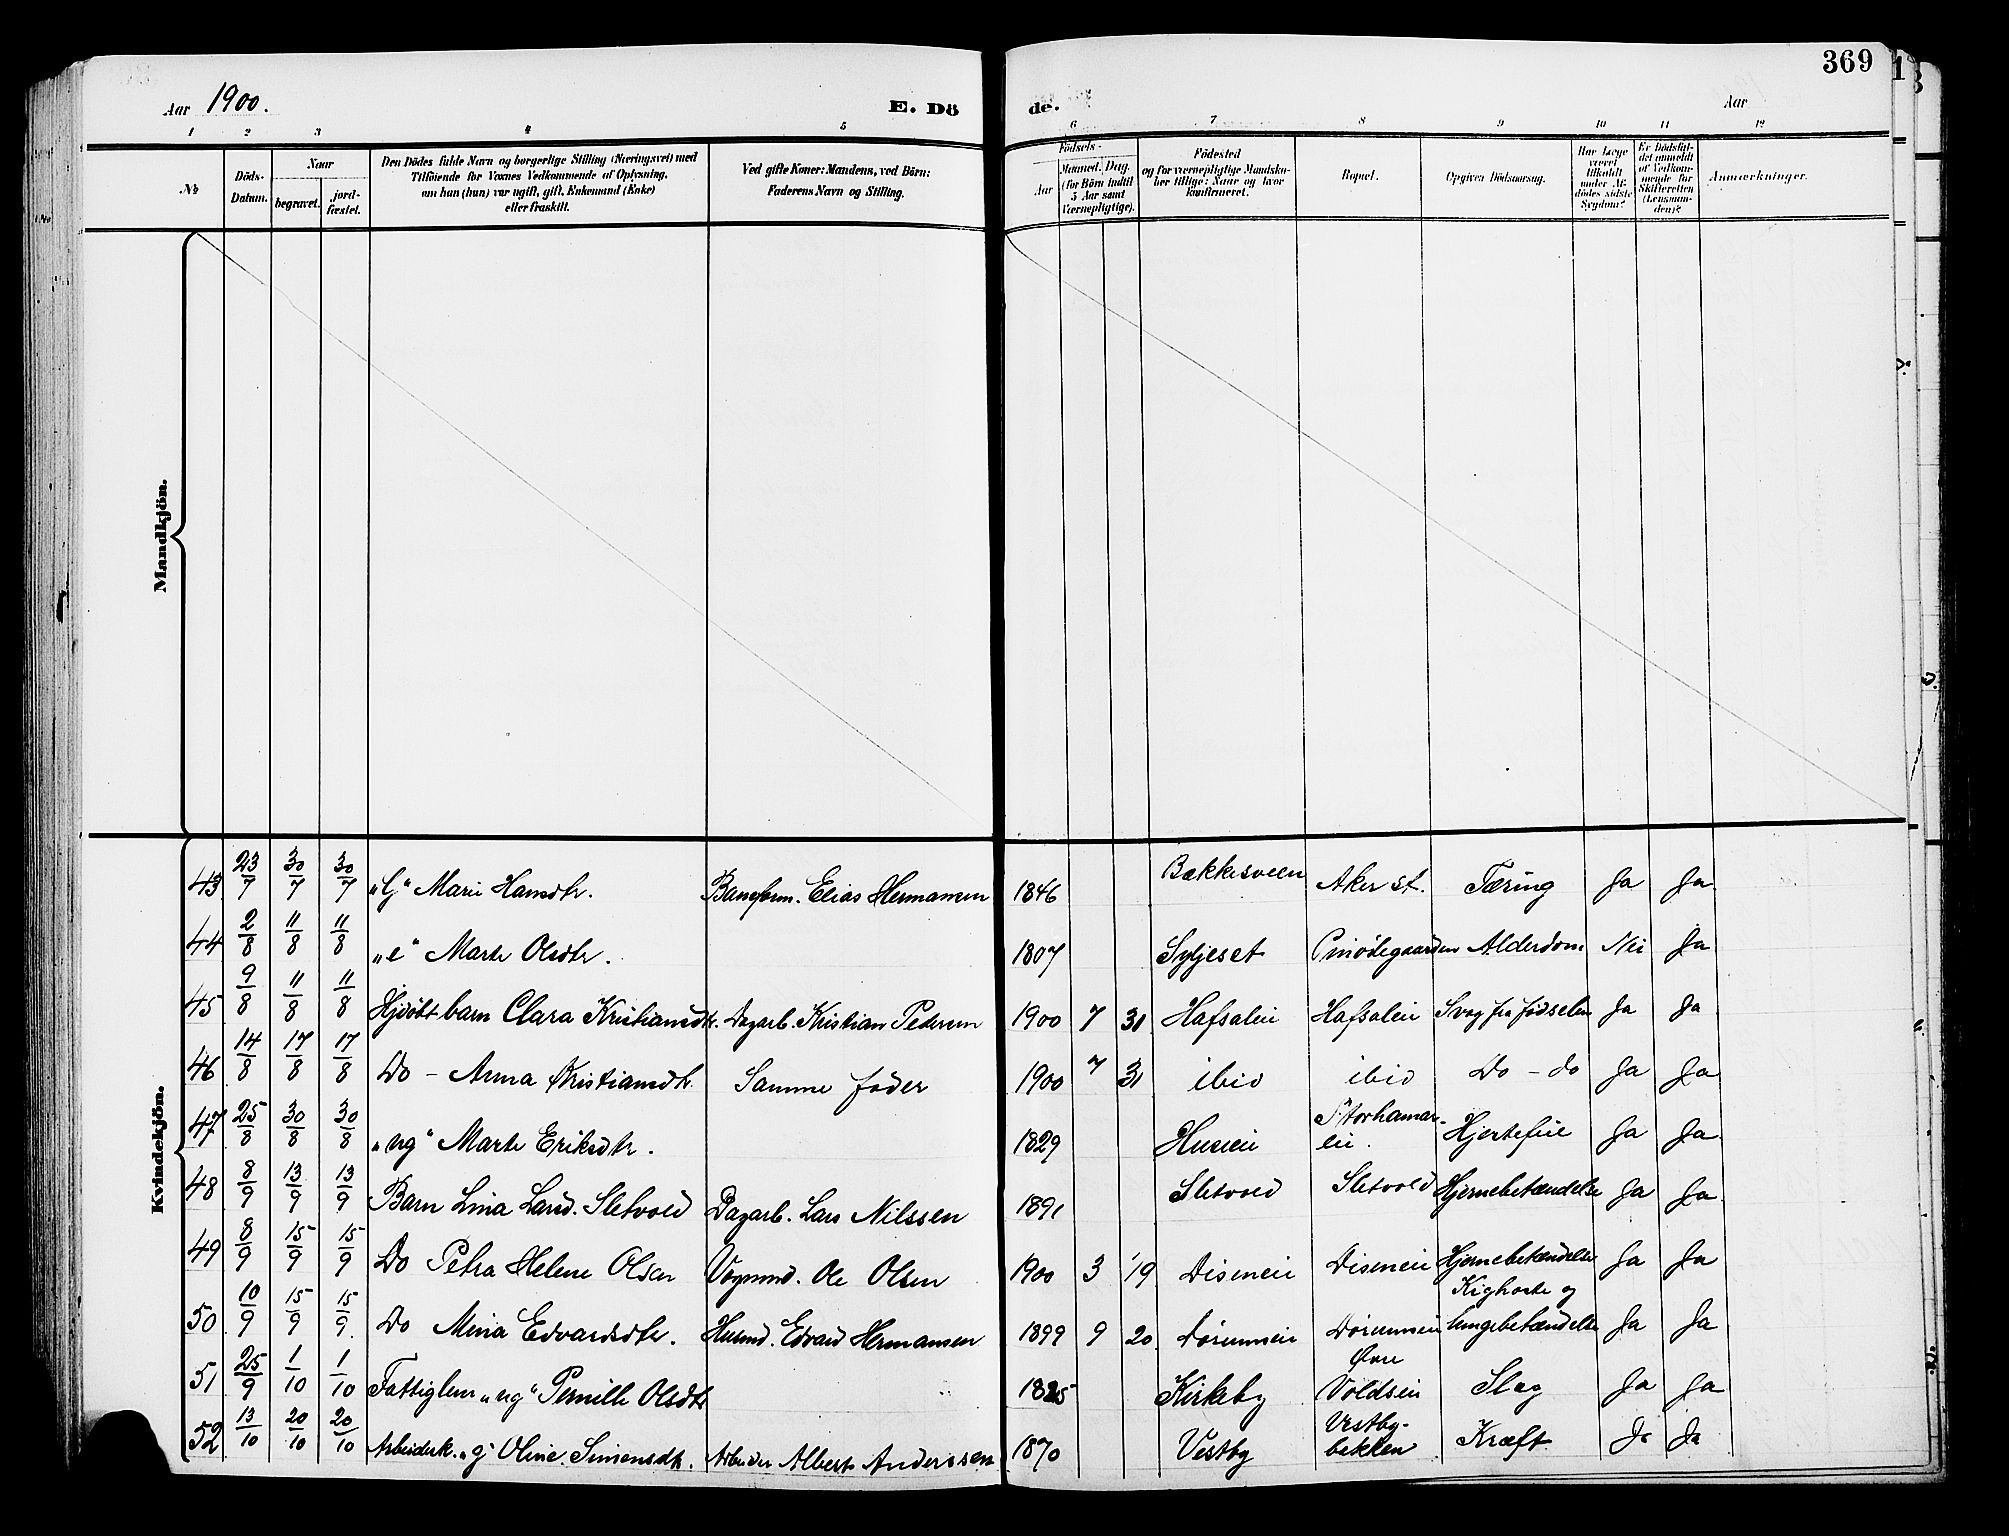 369
Aar 1900.
E. Dö de.
Aar
1 2 3 4 5 6 7 8 9 10 11 12
№
Döds-Datum.
Naar
begravet.
jord-fæstet.
Den Dödes fulde Navn og borgerlige Stilling (Næringsvei) med
Tilföiende for Voxnes Vedkommende af Oplysning,
om han (hun) var ugift, gift, Enkemand (Enke)
eller fraskilt.
Ved gifte Koner: Mandens, ved Börn:
Faderens Navn og Stilling.
Födsels-
Aar
Maaned. Dag.
(for Börn indtil
5 Aar samt
Værnepligtige).
Födested
og for værnepligtige Mandsko-
ber tillige: Naar og hvor
konfirmeret.
Bopæl.
Opgiven Dödsaarsag.
Har Læge
været
tilkaldt
under Af-
dödes sidste
Sygdom?
Er Dödsfal-
det anmeldt
af Vedkom-
mende for
Skifteretten
(Lensman-
den)?
Anmærkninger.
Mandkjön.
Kvindekjön.
43 23/7 30/7 30/7 „G" Marie Hansdtr. Baneform. Elias Hermansen 1846 Bækkesveen Aker st. Tæring Ja Ja
44 2/8 11/8 11/8 „e" Marte Olsdtr. 1807 Syljeset Alderdom Nei Ja
45 9/8 11/8 11/8 Hjdöbt barn Clara Kristiansdtr. Dagarb. Kristian Pedersen 1900 7 31 Hafsaleie Hafsaleie Svag fra fødselen Ja Ja
46 14/8 17/8 17/8 Do – Anna Kristiansdtr. Samme fader 1900 7 31 ibid ibid Do – do Ja Ja
47 25/8 30/8 30/8 „ug" Marte Eriksdtr. 1829 Huseie Storhamar-
eie. Hjertefeil Ja Ja
48 8/9 13/9 13/9 Barn Lina Larsd. Sletvold Dagarb. Lars Nilssen 1891 Sletvold Sletvold Hjernebetændelse Ja Ja
49 8/9 15/9 15/9 Do Petra Helene Olsen Vognmd. Ole Olsen 1900 3 19 Diseneie Diseneie Hjernebetændelse Ja Ja
50 10/9 15/9 15/9 Do Mina Edvardsdtr. Husmd. Edvard Hermansen 1899 9 20 Dørumeie Dørumeie Kighoste og
lungebetændelse Ja Ja
51 25/9 1/10 1/10 Fattiglem „ug" Pernille Olsdtr 1825 Kirkeby Øvre
Voldseie Slag Ja Ja
52 13/10 20/10 20/10 Arbeiderk. „g" Oline Simensdtr. Arbeider Albert Anderssen 1870 Vestby Vestby-
bakken Kræft Ja Ja